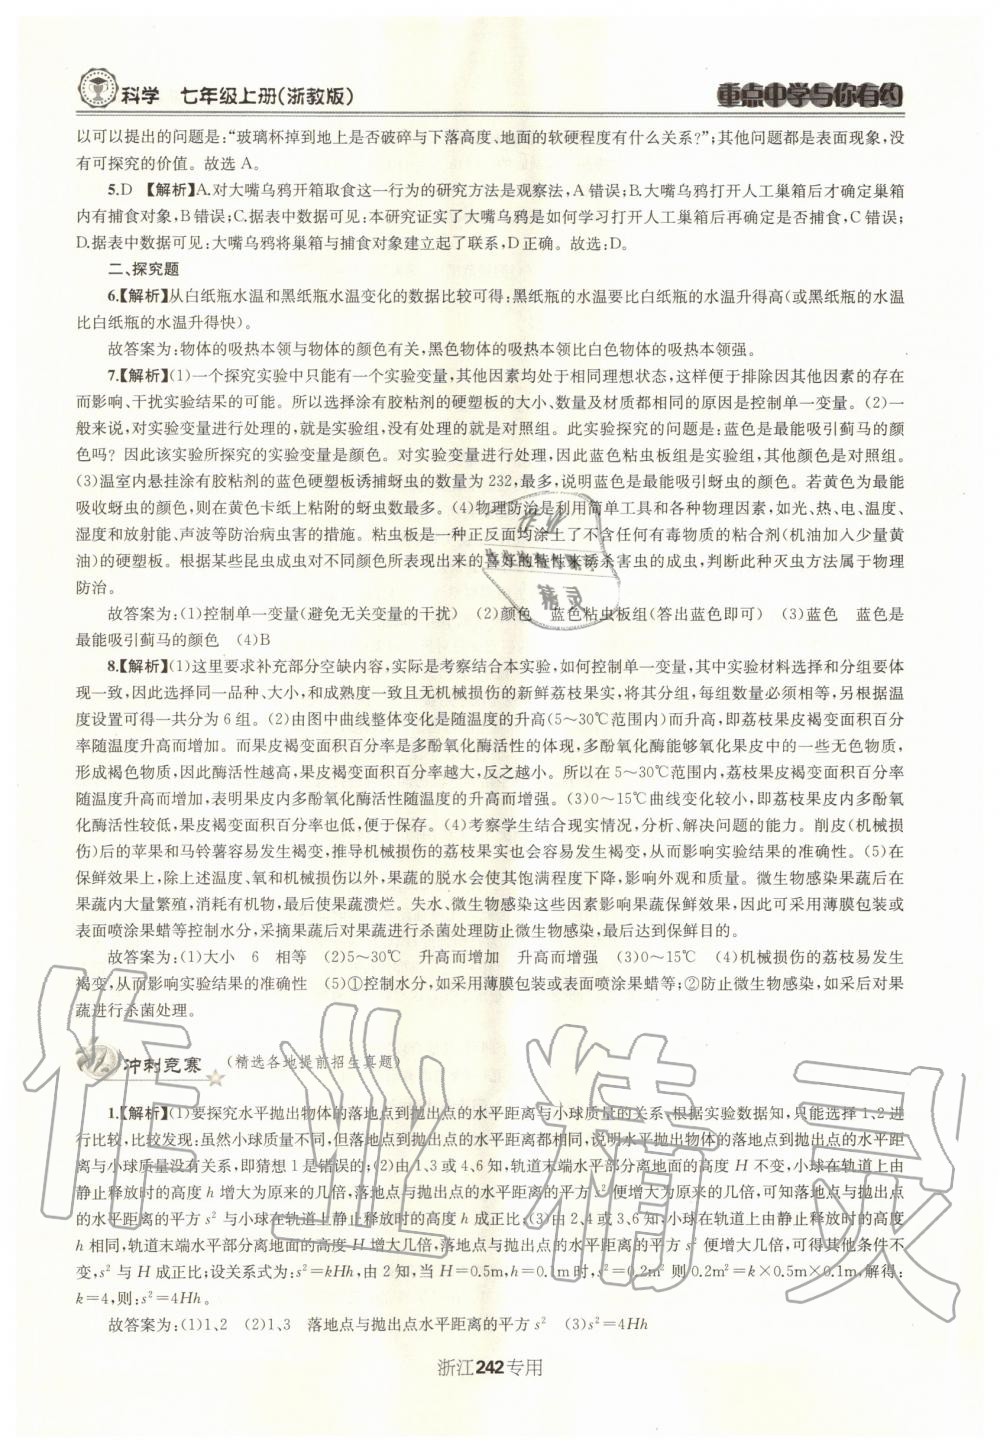 科学 七年级上册(浙教版)
重点中学与你有约
以可以提出的问题是:“玻璃杯掉到地上是否破碎与下落高度、地面的软硬程度有什么关系?”;其他问题都是表面现象,没
有可探究的价值。故选 A。
5.D 【解析】A.对大嘴乌鸦开箱取食这一行为的研究方法是观察法,A 错误;B.大嘴乌鸦打开人工巢箱后才确定巢箱
内有捕食对象,B 错误;C.据表中数据可见:本研究证实了大嘴乌鸦是如何学习打开人工巢箱后再确定是否捕食,C 错误;
D.据表中数据可见:大嘴乌鸦将巢箱与捕食对象建立起了联系,D 正确。故选:D。
二、探究题
6.【解析】从白纸瓶水温和黑纸瓶水温变化的数据比较可得:黑纸瓶的水温要比白纸瓶的水温升得高(或黑纸瓶的水温
比白纸瓶的水温升得快)。
故答案为:物体的吸热本领与物体的颜色有关,黑色物体的吸热本领比白色物体的吸热本领强。
7.【解析】(1)一个探究实验中只能有一个实验变量,其他因素均处于相同理想状态,这样便于排除因其他因素的存在
而影响、干扰实验结果的可能。所以选择涂有胶粘剂的硬塑板的大小、数量及材质都相同的原因是控制单一变量。(2)一
般来说,对实验变量进行处理的,就是实验组,没有处理的就是对照组。此实验探究的问题是:蓝色是最能吸引蓟马的颜
色吗? 因此该实验所探究的实验变量是颜色。对实验变量进行处理,因此蓝色粘虫板组是实验组,其他颜色是对照组。
(3)温室内悬挂涂有胶粘剂的蓝色硬塑板诱捕蚜虫的数量为 232,最多,说明蓝色是最能吸引蚜虫的颜色。若黄色为最能
吸收蚜虫的颜色,则在黄色卡纸上粘附的蚜虫数最多。(4)物理防治是利用简单工具和各种物理因素,如光、热、电、温度、
湿度和放射能、声波等防治病虫害的措施。粘虫板是一种正反面均涂上了不含任何有毒物质的粘合剂(机油加入少量黄
油)的硬塑板。根据某些昆虫成虫对不同颜色所表现出来的喜好的特性来诱杀害虫的成虫,判断此种灭虫方法属于物理
防治。
故答案为:(1)控制单一变量(避免无关变量的干扰) (2)颜色 蓝色粘虫板组(答出蓝色即可) (3)蓝色 蓝色是
最能吸引蓟马的颜色 (4)B
8.【解析】(1)这里要求补充部分空缺内容,实际是考察结合本实验,如何控制单一变量,其中实验材料选择和分组要体
现一致,因此选择同一品种、大小,和成熟度一致且无机械损伤的新鲜荔枝果实,将其分组,每组数量必须相等,另根据温
度设置可得一共分为 6 组。(2)由图中曲线整体变化是随温度的升高(5~30℃范围内)而升高,即荔枝果皮褐变面积百分
率随温度升高而增加。而果皮褐变面积百分率是多酚氧化酶活性的体现,多酚氧化酶能够氧化果皮中的一些无色物质,
形成褐色物质,因此酶活性越高,果皮褐变面积百分率越大,反之越小。所以在 5~30℃范围内,荔枝果皮褐变面积百分率
随温度升高而增加,表明果皮内多酚氧化酶活性随温度的升高而增强。(3)0~15℃曲线变化较小,即荔枝果皮内多酚氧
化酶活性较低,果皮褐变面积百分率也低,便于保存。(4)考察学生结合现实情况,分析、解决问题的能力。削皮(机械损
伤)后的苹果和马铃薯容易发生褐变,推导机械损伤的荔枝果实也会容易发生褐变,从而影响实验结果的准确性。(5)在
保鲜效果上,除上述温度、氧和机械损伤以外,果蔬的脱水会使其饱满程度下降,影响外观和质量。微生物感染果蔬后在
果蔬内大量繁殖,消耗有机物,最后使果蔬溃烂。失水、微生物感染这些因素影响果蔬保鲜效果,因此可采用薄膜包装或
表面喷涂果蜡等控制水分,采摘果蔬后对果蔬进行杀菌处理防止微生物感染,最后达到保鲜目的。
故答案为:(1)大小 6 相等 (2)5~30℃ 升高而增加 升高而增强 (3)0~15℃ (4)机械损伤的荔枝易发生
褐变,从而影响实验结果的准确性 (5)①控制水分,如采用薄膜包装或表面喷涂果蜡等;②防止微生物感染,如采后对果
蔬进行杀菌处理。
冲刺竞赛 (精选各地提前招生真题)
1.【解析】(1)要探究水平抛出物体的落地点到抛出点的水平距离与小球质量的关系,根据实验数据知,只能选择 1、2 进
行比较,比较发现:虽然小球质量不同,但落地点与抛出点的水平距离都相同,说明水平抛出物体的落地点到抛出点的水平距
离与小球质量没有关系,即猜想 1 是错误的;(2)由 1、3 或 4、6 知,轨道末端水平部分离地面的高度 H 不变,小球在轨道上由
静止释放时的高度 h 增大为原来的几倍,落地点与抛出点的水平距离的平方 s² 便增大为原来的几倍,可知落地点与抛出点
的水平距离的平方 s² 与小球在轨道上静止释放时的高度 h 成正比;(3)由 2、4 或 3、6 知,小球在轨道上由静止释放时的高度
h 相同,轨道末端水平部分离地面的高度 H 增大几倍,落地点与抛出点的水平距离的平方 s² 便增大几倍,可得其他条件不
变,s² 与 H 成正比;设关系式为:s²=kHh,由 2 知,当 H=0.5m,h=0.1m时,s²=0.2m² 则 0.2m²=k×0.5m×0.1m,解得:
k=4,则:s²=4Hh。
故答案为:(1)1、2 (2)1、3 落地点与抛出点水平距离的平方 s² (3)s²=4Hh
浙江242专用
作业精灵
作业
精灵